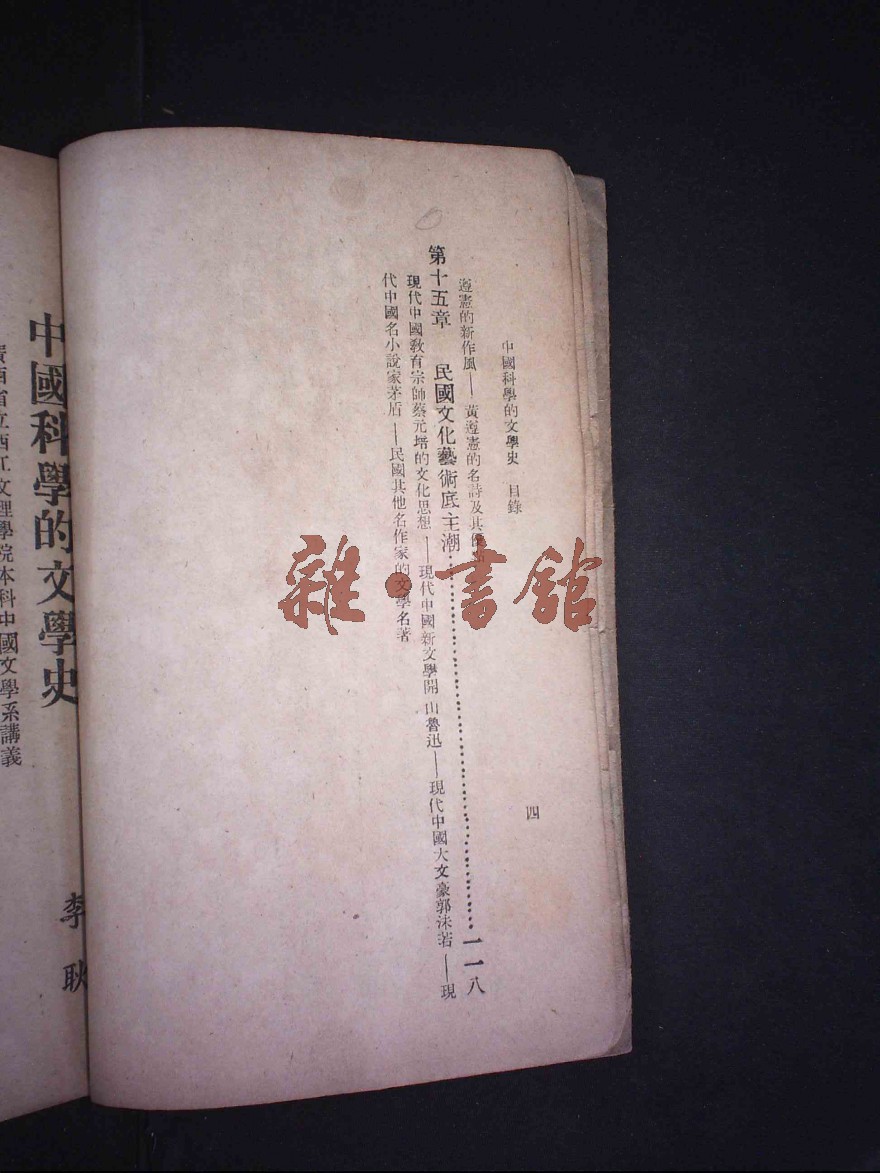 中國科學的文學史 目錄
四
遵憲的新作風——黃遵憲的名詩及其優
第十五章 民國文化藝術底主潮……………………一一八
現代中國教育宗師蔡元培的文化思想——現代中國新文學開山魯迅——現代中國大文豪郭沫若——現
代中國名小說家茅盾——民國其他名作家的文學名著
中國科學的文學史
李耿
省立西江文理學院本科中國文學系講義
雜·書館